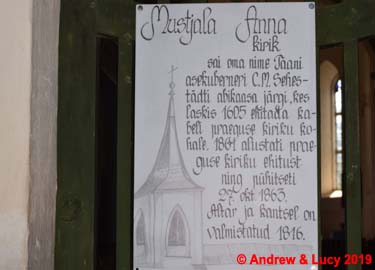 Mustjala Anna
kirik
sai oma nime Taani
asekuberneri C.M. Sehes-
tädti abikaasa järgi, kes
laskis 1605 ehitada ka-
beli praeguse kiriku ko-
hale. 1861 alustati prae-
guse kiriku ehitust
ning pühitseti
27. okt. 1863.
Altar ja kantsel on
valmistatud 1816.
© Andrew & Lucy 2019